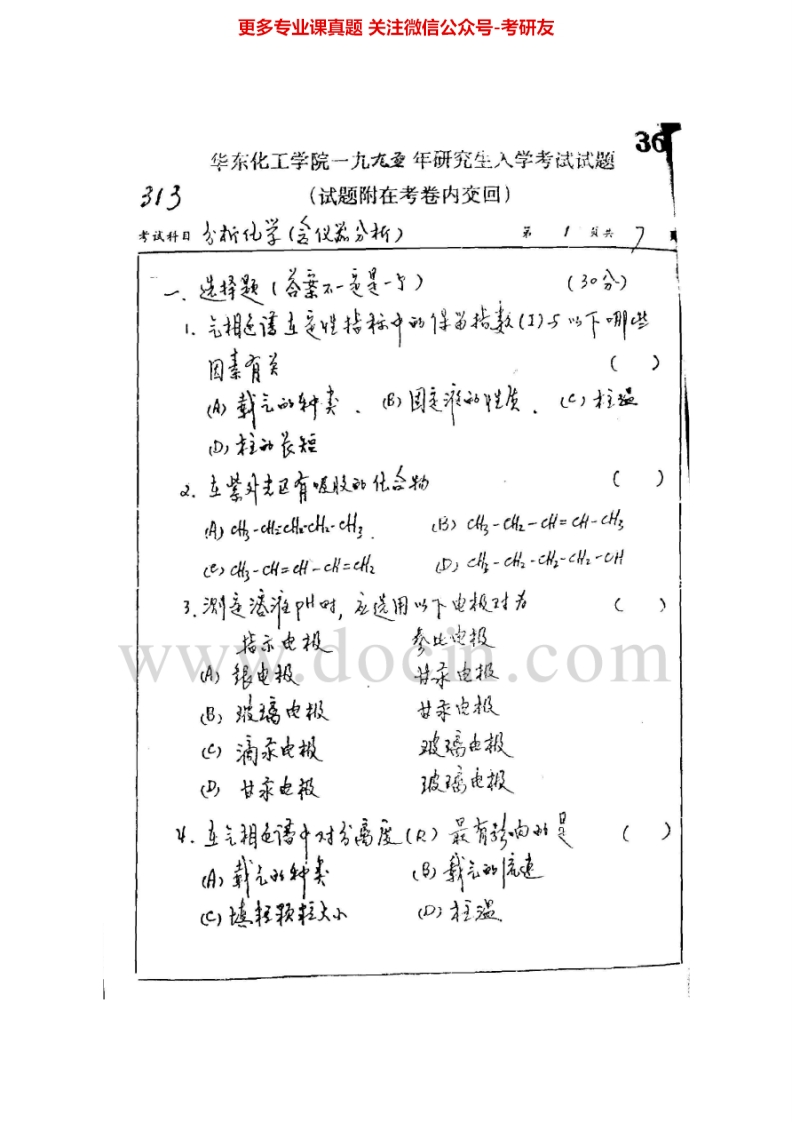 更多专业课真题 关注微信公众号-考研友
36
华东化工学院一九九五年研究生入学考试试题
313 (试题附在考卷内交回)
考试科目 分析化学(含仪器分析) 第 1 页共 7
一、选择题(答案不一定是一个) (30分)
1. 气相色谱立定性指标中的保留指数(I)与以下哪些
因素有关 ( )
(A) 载气的种类、(B) 固定液的性质、(C) 柱温
(D) 柱的长短
2. 在紫外光区有吸收的化合物 ( )
(A) CH3-CH=CH2-CH2-CH3. (B) CH3-CH2-CH=CH-CH3
(C) CH3-CH=CH-CH=CH2 (D) CH3-CH2-CH2-CH2-OH
3. 测定溶液pH时, 应选用以下电极对为 ( )
指示电极 参比电极
(A) 银电极 甘汞电极
(B) 玻璃电极 甘汞电极
(C) 滴汞电极 玻璃电极
(D) 甘汞电极 玻璃电极
www.docin.com
4. 在气相色谱中对分离度(R)最有影响的是 ( )
(A) 载气的种类 (B) 载气的流速
(C) 填料颗粒大小 (D) 柱温